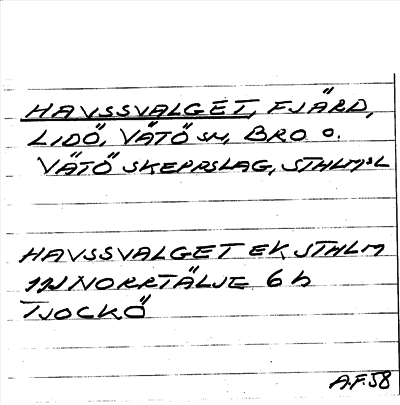 HAVSSVALGET, FJÄRD,
LIDÖ, VÄTÖ SN, BRO O.
VÄTÖ SKEPPSLAG, STHLMS L
HAVSSVALGET EK STHLM
12J NORRTÄLJE 6 h
TJOCKÖ
A.F. 58